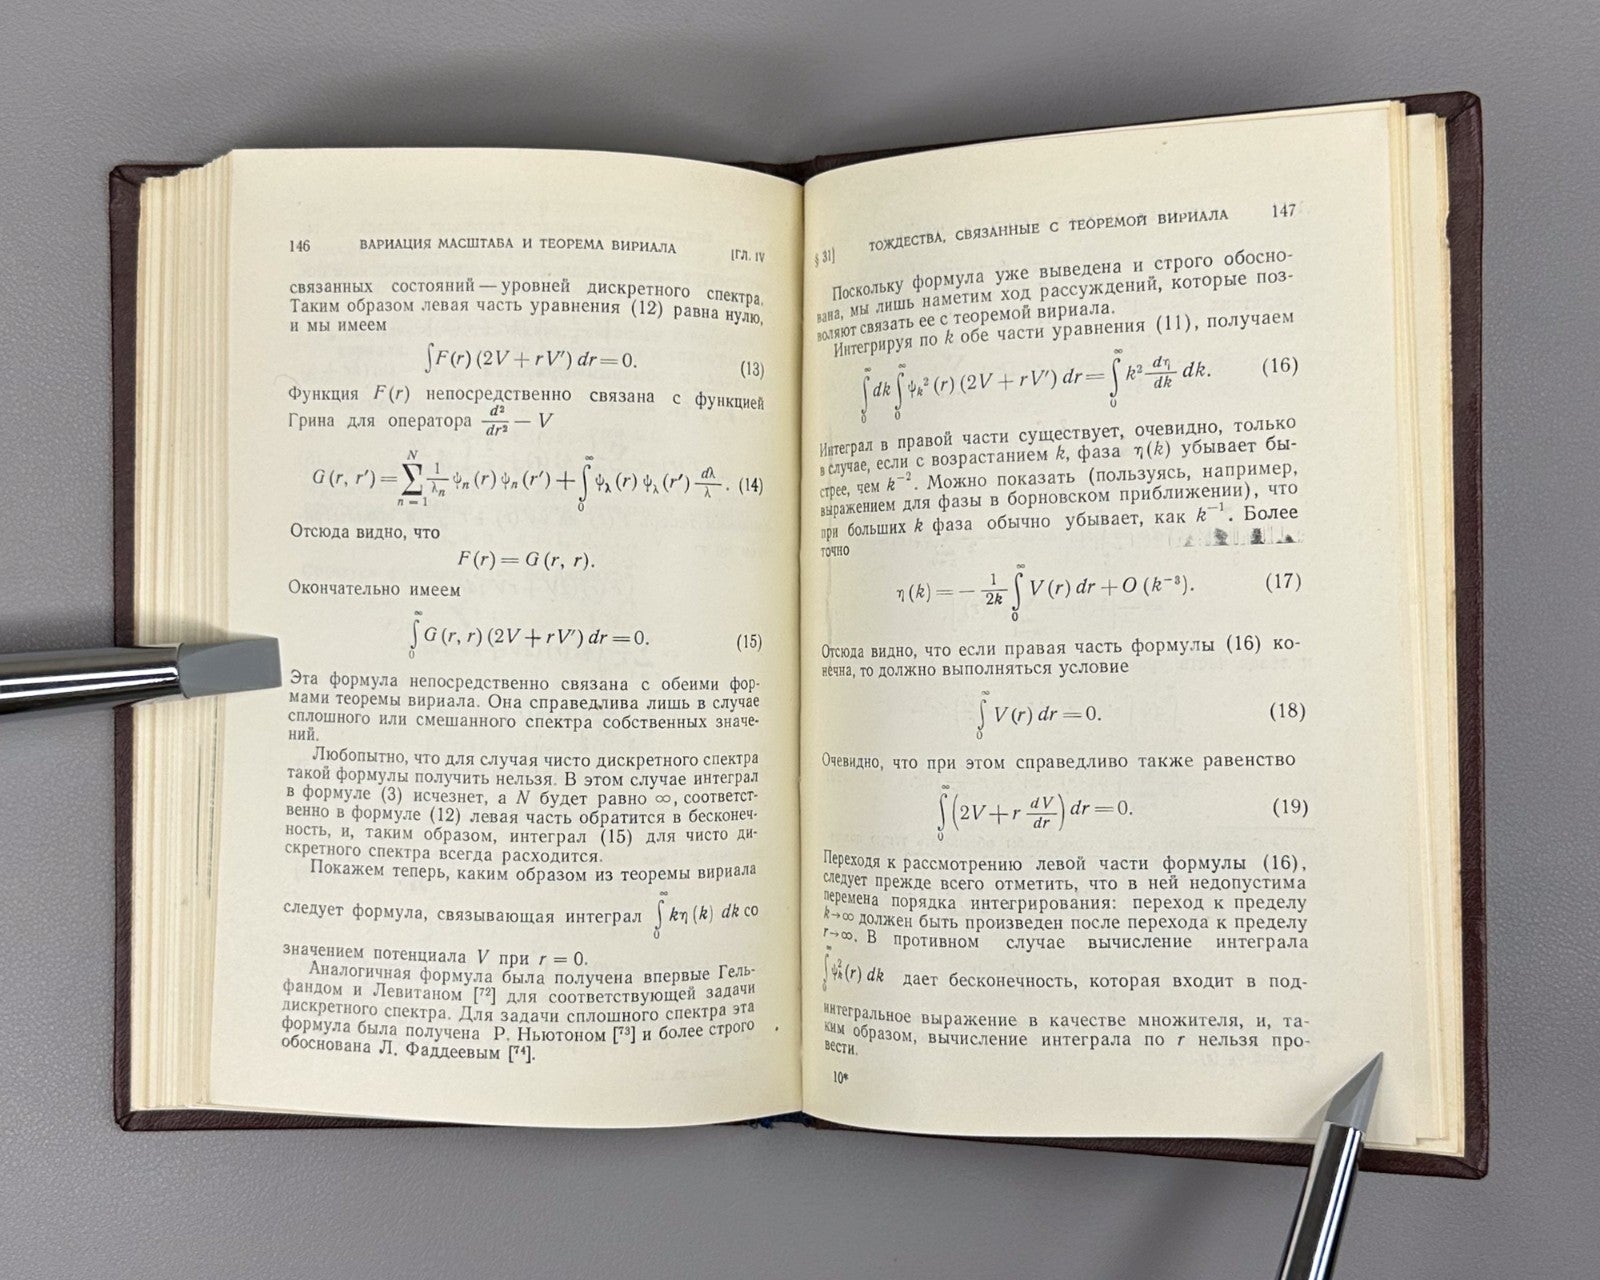 146 ВАРИАЦИЯ МАСШТАБА И ТЕОРЕМА ВИРИАЛА [ГЛ. IV
связанных состояний — уровней дискретного спектра.
Таким образом левая часть уравнения (12) равна нулю,
и мы имеем
∫F(r) (2V + rV′) dr = 0. (13)
Функция F(r) непосредственно связана с функцией
Грина для оператора d²/dr² — V
G(r, r′) = ∑_{n=1}^{N} 1/λₙ ψₙ(r) ψₙ(r′) + ∫₀^∞ ψ_λ(r) ψ_λ(r′) dλ/λ. (14)
Отсюда видно, что
F(r) = G(r, r).
Окончательно имеем
∫₀^∞ G(r, r) (2V + rV′) dr = 0. (15)
Эта формула непосредственно связана с обеими фор-
мами теоремы вириала. Она справедлива лишь в случае
сплошного или смешанного спектра собственных значе-
ний.
Любопытно, что для случая чисто дискретного спектра
такой формулы получить нельзя. В этом случае интеграл
в формуле (3) исчезнет, а N будет равно ∞, соответст-
венно в формуле (12) левая часть обратится в бесконеч-
ность, и, таким образом, интеграл (15) для чисто ди-
скретного спектра всегда расходится.
Покажем теперь, каким образом из теоремы вириала
следует формула, связывающая интеграл ∫₀^∞ kη(k) dk со
значением потенциала V при r = 0.
Аналогичная формула была получена впервые Гель-
фандом и Левитаном [⁷²] для соответствующей задачи
дискретного спектра. Для задачи сплошного спектра эта
формула была получена Р. Ньютоном [⁷³] и более строго
обоснована Л. Фаддеевым [⁷⁴].
§ 31] ТОЖДЕСТВА, СВЯЗАННЫЕ С ТЕОРЕМОЙ ВИРИАЛА 147
Поскольку формула уже выведена и строго обосно-
вана, мы лишь наметим ход рассуждений, которые поз-
воляют связать ее с теоремой вириала.
Интегрируя по k обе части уравнения (11), получаем
∫₀^∞ dk ∫₀^∞ ψₖ²(r) (2V + rV′) dr = ∫₀^∞ k² dη/dk dk. (16)
Интеграл в правой части существует, очевидно, только
в случае, если с возрастанием k, фаза η(k) убывает бы-
стрее, чем k⁻². Можно показать (пользуясь, например,
выражением для фазы в борновском приближении), что
при больших k фаза обычно убывает, как k⁻¹. Более
точно
η(k) = — 1/2k ∫₀^∞ V(r) dr + O(k⁻³). (17)
Отсюда видно, что если правая часть формулы (16) ко-
нечна, то должно выполняться условие
∫₀^∞ V(r) dr = 0. (18)
Очевидно, что при этом справедливо также равенство
∫₀^∞ (2V + r dV/dr) dr = 0. (19)
Переходя к рассмотрению левой части формулы (16),
следует прежде всего отметить, что в ней недопустима
перемена порядка интегрирования: переход к пределу
k→∞ должен быть произведен после перехода к пределу
r→∞. В противном случае вычисление интеграла
∫₀^∞ ψₖ²(r) dk дает бесконечность, которая входит в под-
интегральное выражение в качестве множителя, и, та-
ким образом, вычисление интеграла по r нельзя про-
вести.
10*